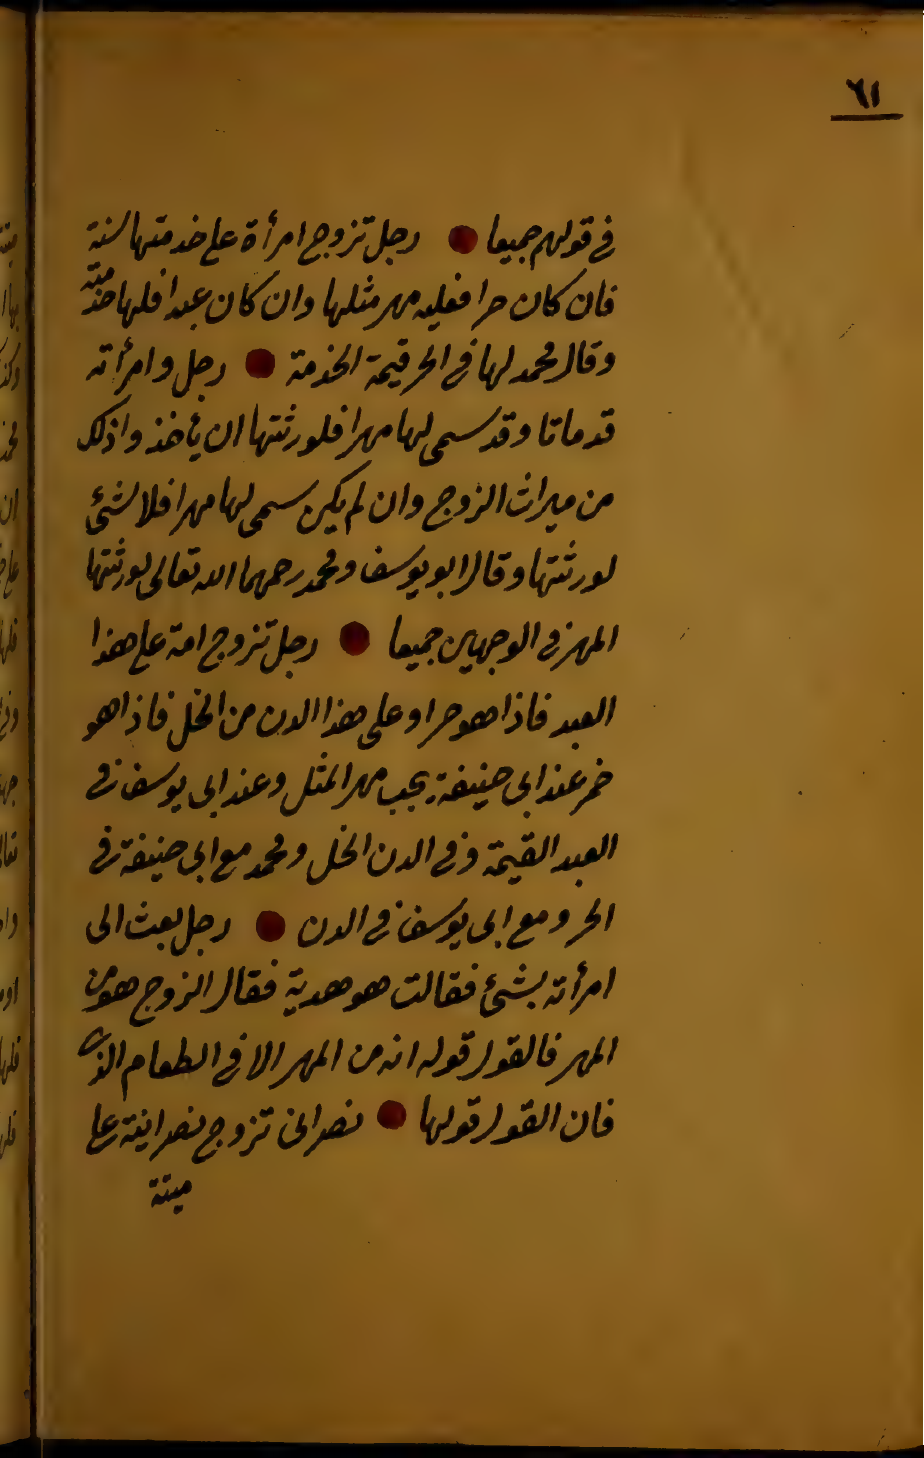 ٦١
في قولهم جميعا ● رجل تزوج امرأة على خدمتها سنة
فان كان حرا فعليه مهر مثلها وان كان عبدا فلها خدمته
وقال محمد لها في الحر قيمة الخدمة ● رجل وامرأته
قد ماتا وقد سمى لها مهرا فلورثتها ان يأخذوا ذلك
من ميراث الزوج وان لم يكن سمى لها مهرا فلا شئ
لورثتها وقال ابو يوسف ومحمد رحمهما الله تعالى لورثتها
المهر في الوجهين جميعا ● رجل تزوج امة على هذا
العبد فاذا هو حر او على هذا الدن من الخل فاذا هو
خمر عند ابى حنيفة يجب مهر المثل وعند ابى يوسف في
العبد القيمة وفي الدن الخل ومحمد مع ابى حنيفة في
الحر ومع ابى يوسف في الدن ● رجل بعث الى
امرأته بشئ فقالت هو هدية فقال الزوج هو من
المهر فالقول قوله انه من المهر الا في الطعام الذى
فان القول قولها ● نصرانى تزوج نصرانية على
ميتة